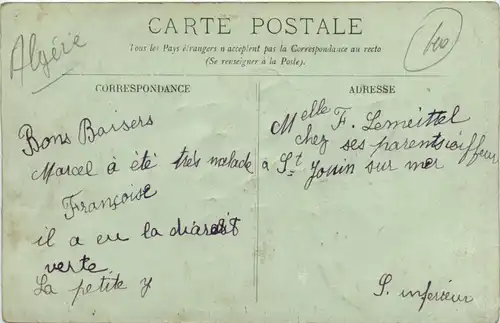 Algérie
CARTE POSTALE
100
Tous les Pays étrangers n'acceptent pas la Correspondance au recto
(Se renseigner à la Poste).
CORRESPONDANCE
Bons Baisers
Marcel à été très malade
Françoise
il a eu la diarait
verte
La petite Y
ADRESSE
Melle F. Lemeittel
chez ses parents coiffeur
a St Jouin sur mer
S. inferieur